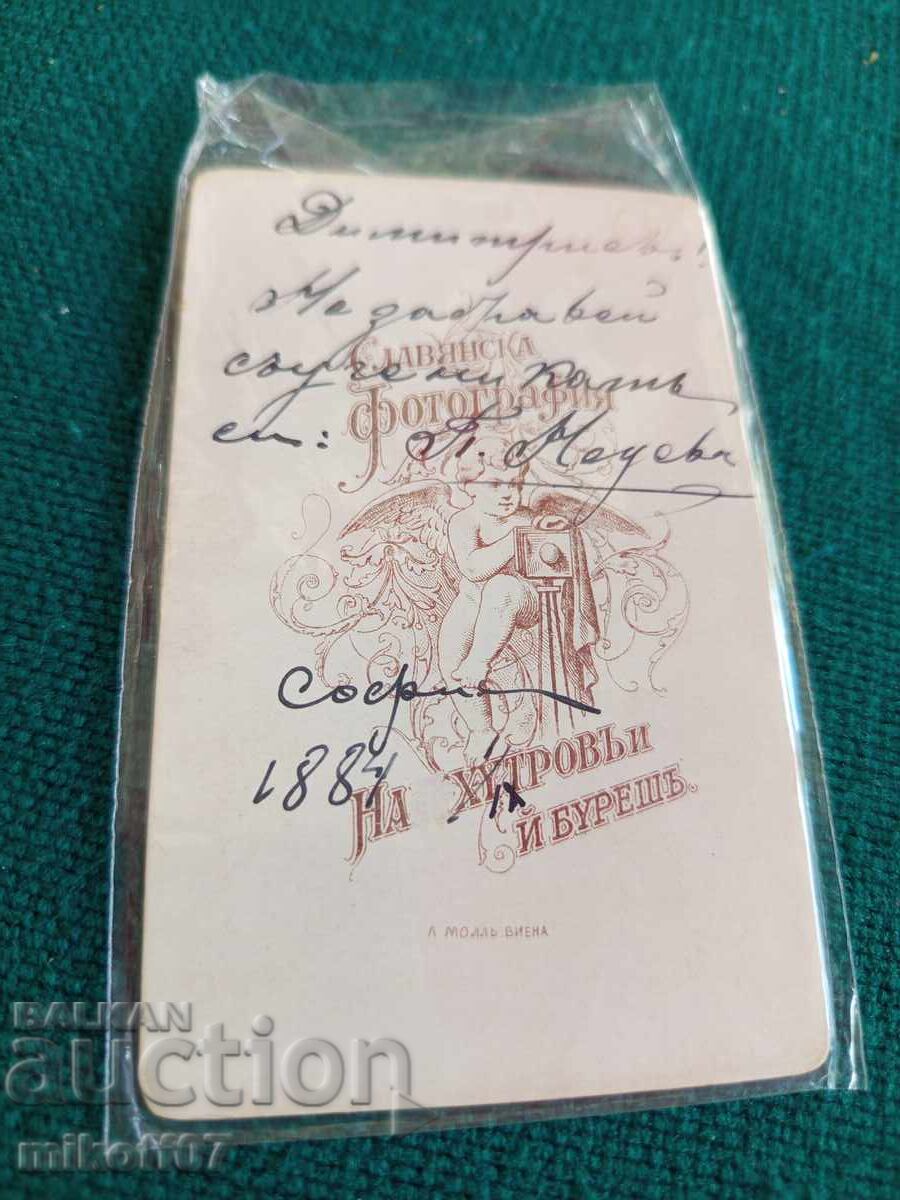 Димитриевъ!
Не забравяй
съученикътъ
си:
СЛАВЯНСКА
ФОТОГРАФИЯ
София
1887 1/IX
НА ХИТРОВЪ И
Й БУРЕШЪ.
Л МОЛЛЬ. ВИЕНА
BALKAN
auction
mikoff07